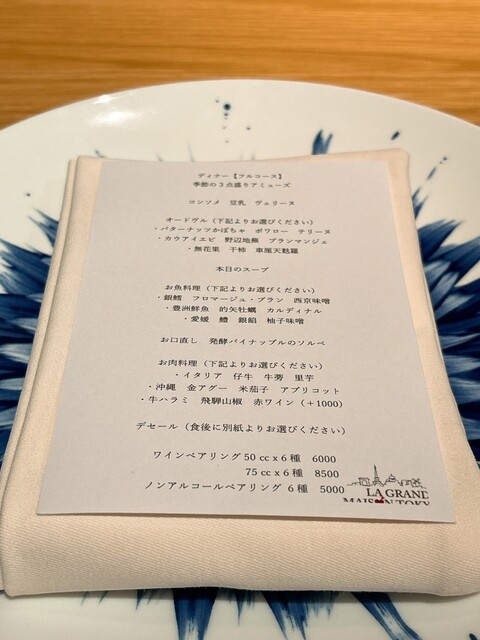 ディナー【フルコース】
季節の3点盛りアミューズ
コンソメ 豆乳 ヴェリーヌ
オードヴル(下記よりお選びください)
・バターナッツかぼちゃ ポワロー テリーヌ
・カウアイエビ 野辺地蕪 ブランマンジェ
・無花果 干柿 車厘天麩羅
本日のスープ
お魚料理(下記よりお選びください)
・銀鱈 フロマージュ・ブラン 西京味噌
・豊洲鮮魚 的矢牡蠣 カルディナル
・愛媛 鱧 銀餡 柚子味噌
お口直し 発酵パイナップルのソルベ
お肉料理(下記よりお選びください)
・イタリア 仔牛 牛蒡 里芋
・沖縄 金アグー 米茄子 アプリコット
・牛ハラミ 飛騨山椒 赤ワイン(+1000)
デセール(食後に別紙よりお選びください)
ワインペアリング50 cc x 6 種 6000
75 cc x 6 種 8500
ノンアルコールペアリング 6 種 5000
LA GRAND
MAISON TOKY